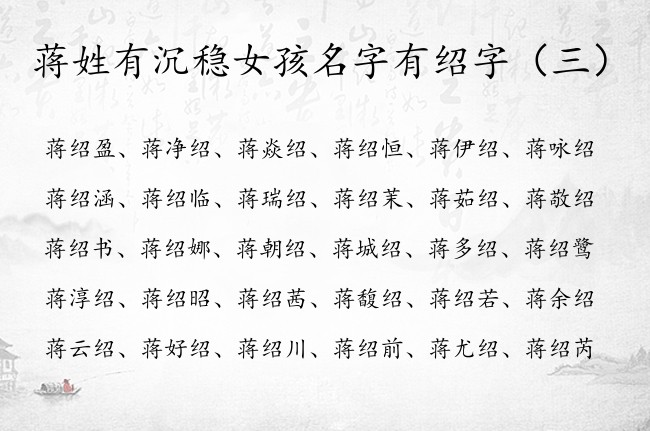 蒋姓有沉稳女孩名字有绍字（三）
蒋绍盈、蒋净绍、蒋焱绍、蒋绍恒、蒋伊绍、蒋咏绍
蒋绍涵、蒋绍临、蒋瑞绍、蒋绍茉、蒋茹绍、蒋敬绍
蒋绍书、蒋绍娜、蒋朝绍、蒋城绍、蒋多绍、蒋绍鹭
蒋淳绍、蒋绍昭、蒋绍茜、蒋馥绍、蒋绍若、蒋余绍
蒋云绍、蒋好绍、蒋绍川、蒋绍前、蒋尤绍、蒋绍芮